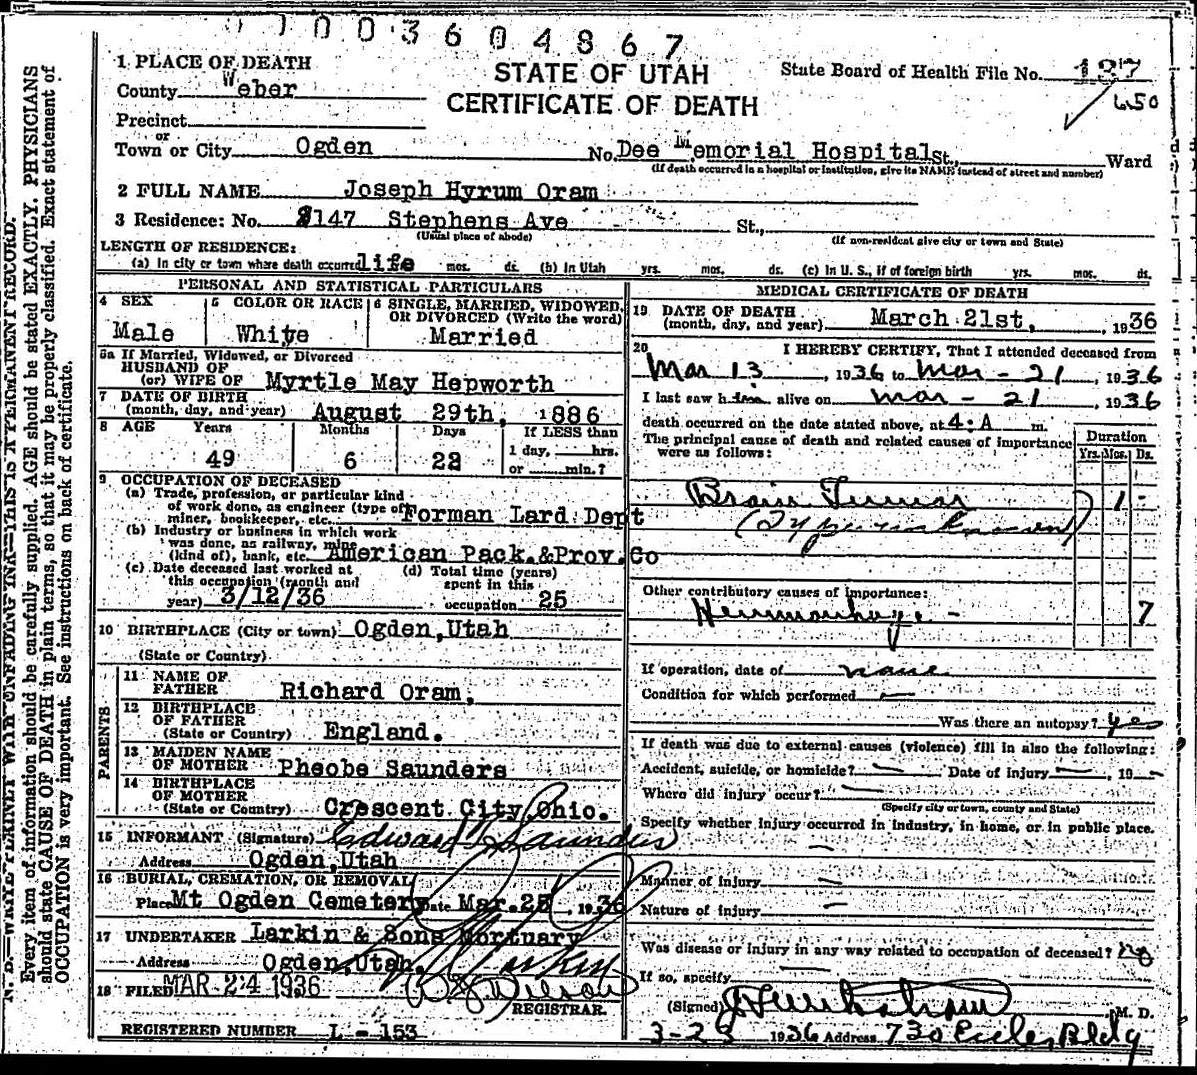 1003604867
STATE OF UTAH
CERTIFICATE OF DEATH
State Board of Health File No. 187
650
N. B.—WRITE PLAINLY WITH UNFADING INK—THIS IS A PERMANENT RECORD.
Every item of information should be carefully supplied. AGE should be stated EXACTLY. PHYSICIANS
should state CAUSE OF DEATH in plain terms, so that it may be properly classified. Exact statement of
OCCUPATION is very important. See instructions on back of certificate.
1 PLACE OF DEATH
County Weber
Precinct
or
Town or City Ogden No. Dee Memorial Hospital St., Ward
(If death occurred in a hospital or institution, give its NAME instead of street and number)
2 FULL NAME Joseph Hyrum Oram
3 Residence: No. 2147 Stephens Ave St.,
(Usual place of abode) (If non-resident give city or town and State)
LENGTH OF RESIDENCE:
(a) In city or town where death occurred life mos. ds. (b) In Utah yrs. mos. ds. (c) In U. S., if of foreign birth yrs. mos. ds.
PERSONAL AND STATISTICAL PARTICULARS
4 SEX
Male
5 COLOR OR RACE
White
6 SINGLE, MARRIED, WIDOWED,
OR DIVORCED (Write the word)
Married
5a If Married, Widowed, or Divorced
HUSBAND OF
(or) WIFE OF Myrtle May Hepworth
7 DATE OF BIRTH
(month, day, and year) August 29th, 1886
8 AGE Years Months Days If LESS than
1 day, hrs.
49 6 22 or min.?
9 OCCUPATION OF DECEASED
(a) Trade, profession, or particular kind
of work done, as engineer (type of
miner, bookkeeper, etc. Forman Lard Dept
(b) Industry or business in which work
was done, as railway, mine
(kind of), bank, etc. American Pack.&Prov.Co
(c) Date deceased last worked at
this occupation (month and
year) 3/12/36
(d) Total time (years)
spent in this
occupation 25
10 BIRTHPLACE (City or town) Ogden,Utah
(State or Country)
PARENTS
11 NAME OF
FATHER Richard Oram,
12 BIRTHPLACE
OF FATHER
(State or Country) England.
13 MAIDEN NAME
OF MOTHER Pheobe Saunders
14 BIRTHPLACE
OF MOTHER
(State or Country) Crescent City,Ohio.
15 INFORMANT (Signature) Edward Saunders
Address Ogden,Utah
16 BURIAL, CREMATION, OR REMOVAL
Place Mt Ogden Cemetery Date Mar.25, 1936
17 UNDERTAKER Larkin & Sons Mortuary
Address Ogden,Utah.
18 FILED MAR 24 1936 Wilson
REGISTRAR.
REGISTERED NUMBER L - 153
MEDICAL CERTIFICATE OF DEATH
19 DATE OF DEATH
(month, day, and year) March 21st, 1936
20 I HEREBY CERTIFY, That I attended deceased from
Mar 13, 1936 to Mar - 21, 1936
I last saw him alive on Mar - 21, 1936
death occurred on the date stated above, at 4:A m.
The principal cause of death and related causes of importance
were as follows:
Duration
Yrs. Mos. Ds.
Brain Tumor 1 -
(Type unknown)
Other contributory causes of importance:
Hemmorhage - 7
If operation, date of none
Condition for which performed -
Was there an autopsy? yes
If death was due to external causes (violence) fill in also the following:
Accident, suicide, or homicide? — Date of injury —, 19 -
Where did injury occur? —
(Specify city or town, county and State)
Specify whether injury occurred in industry, in home, or in public place.
—
Manner of injury —
Nature of injury —
Was disease or injury in any way related to occupation of deceased? no
If so, specify —
(Signed) M. D.
3-23 1936 Address 730 Eccles Bldg